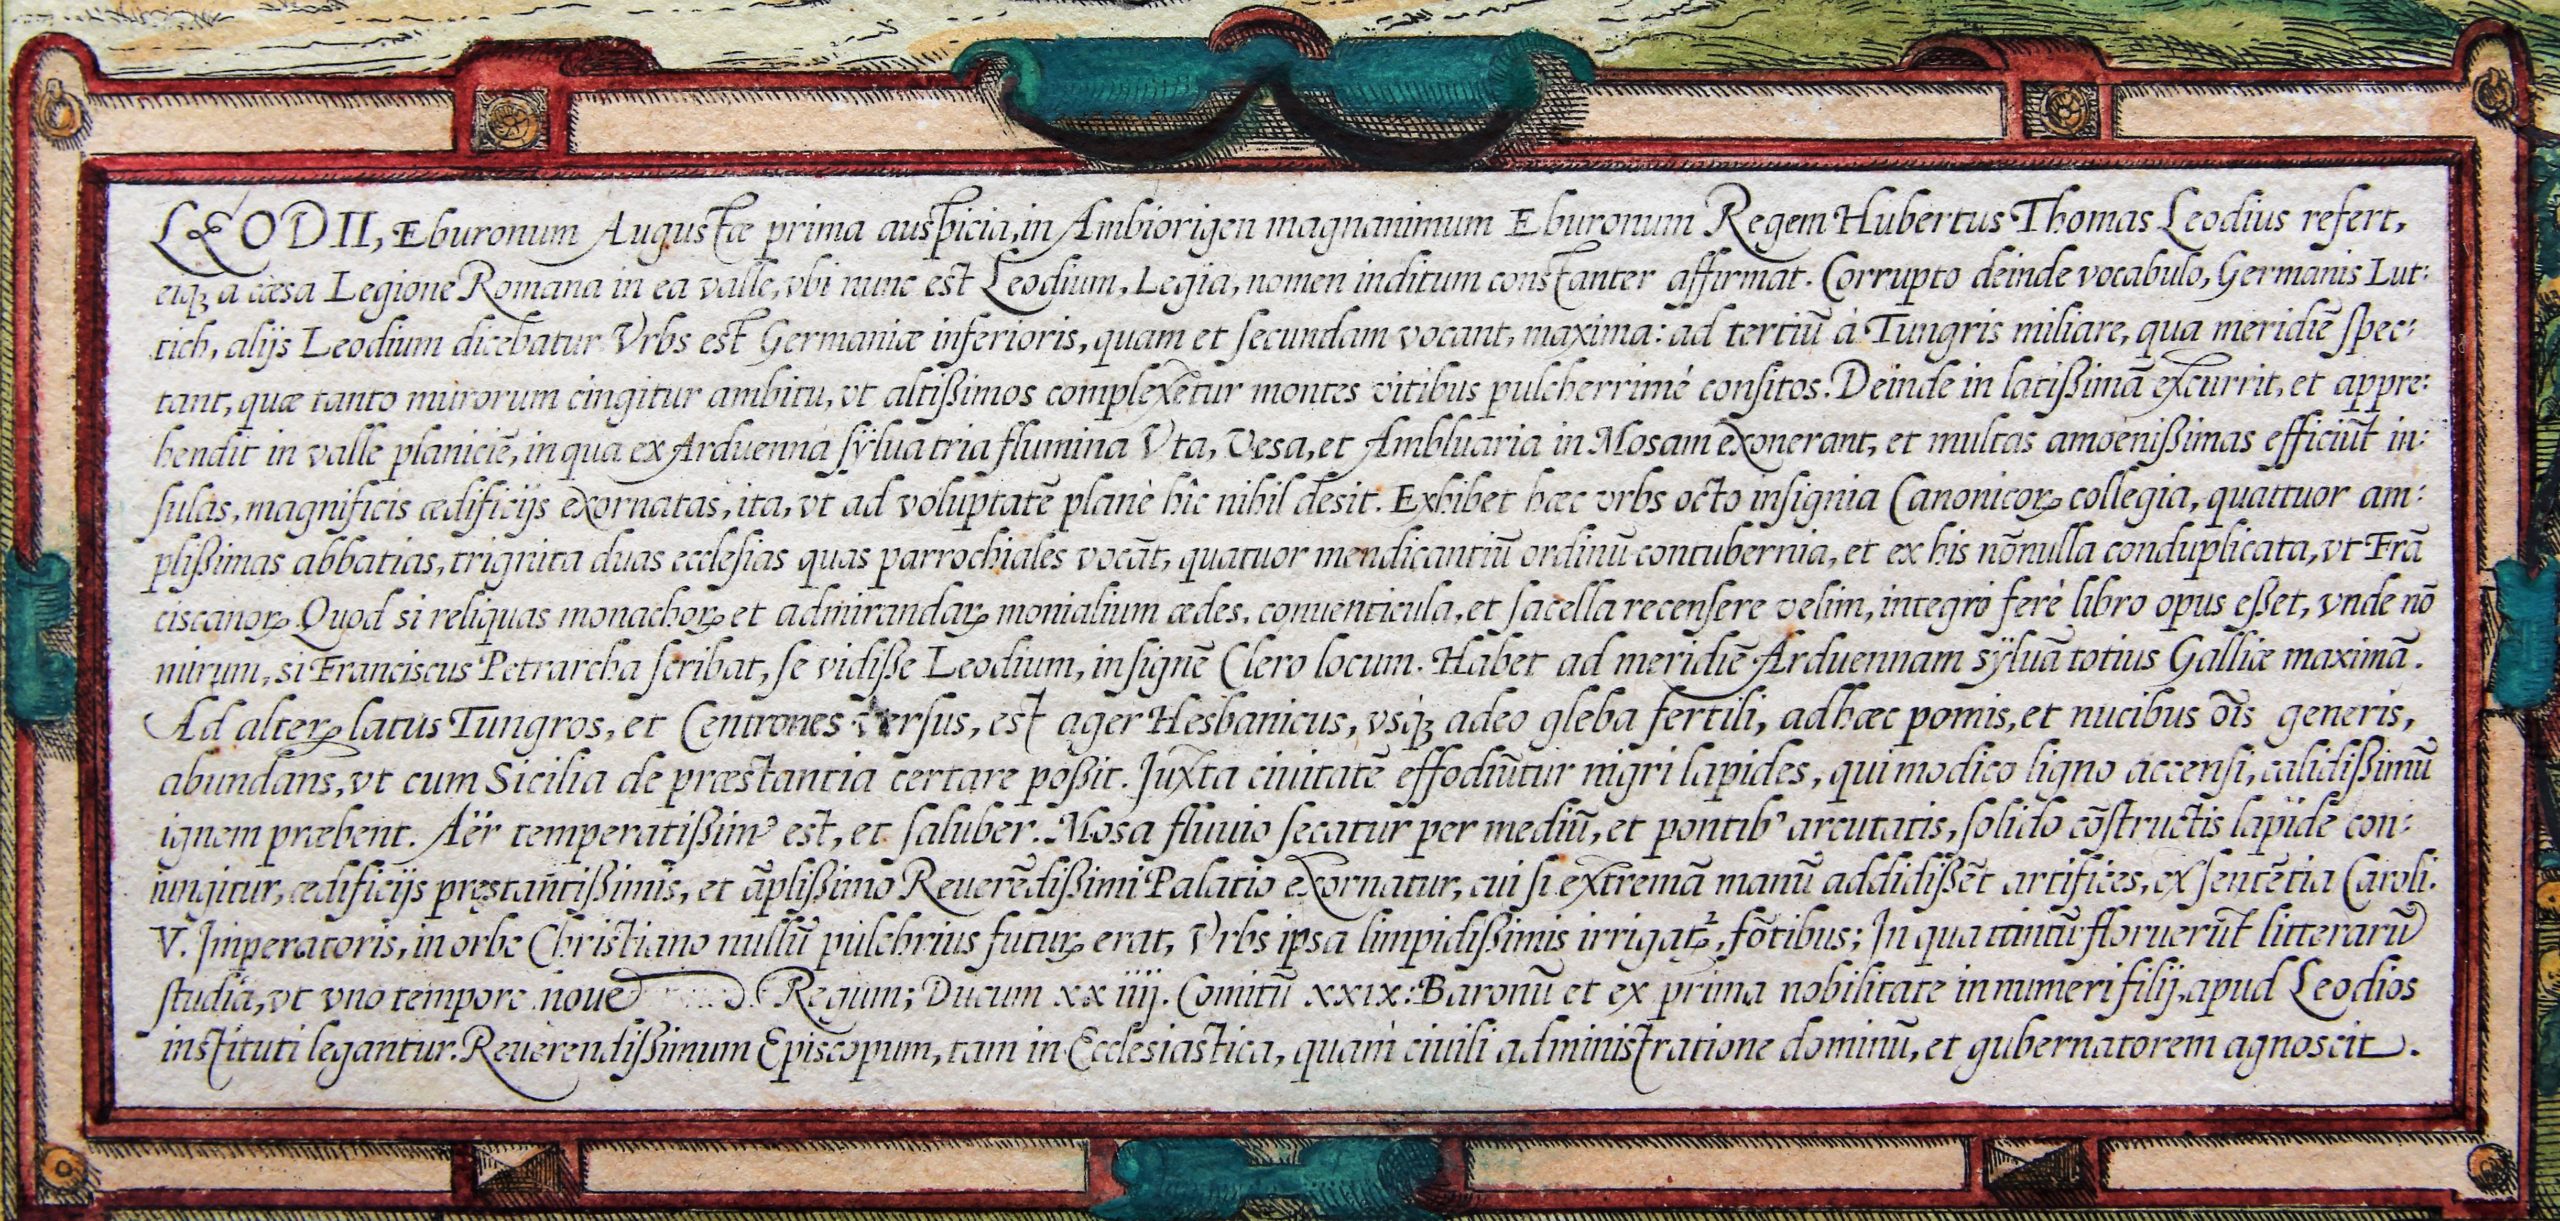 LEODII, Eburonum Augustæ prima auspicia, in Ambiorigen magnanimum Eburonum Regem Hubertus Thomas Leodius refert,
eiqꝫ a cæsa Legione Romana in ea valle, vbi nunc est Leodium, Legia, nomen inditum constanter affirmat. Corrupto deinde vocabulo, Germanis Lut:
tich, alijs Leodium dicebatur. Vrbs est Germaniæ inferioris, quam et secundam vocant, maxima: ad tertiū à Tungris miliare, qua meridiē spec:
tant, quæ tanto murorum cingitur ambitu, vt altißimos complexetur montes vitibus pulcherrimè consitos. Deinde in latißimā excurrit, et appre:
hendit in valle planiciē, in qua ex Arduenna sÿlua tria flumina Vta, Vesa, et Ambluaria in Mosam exonerant, et multas amoenißimas efficiūt in:
sulas, magnificis ædificijs exornatas, ita, vt ad voluptatē planè hîc nihil desit. Exhibet hæc vrbs octo insignia Canonicoꝝ collegia, quattuor am:
plißimas abbatias, trignita duas ecclesias quas parrochiales vocāt, quatuor mendicantiū ordinū contubernia, et ex his nōnulla conduplicata, vt Frā
ciscanoꝝ. Quod si reliquas monachoꝝ et admirandaꝝ monialium ædes, conuenticula, et sacella recensere velim, integro ferè libro opus eßet, vnde nō
mirum, si Franciscus Petrarcha scribat, se vidiße Leodium, insignē Clero locum. Habet ad meridiē Arduennam sÿluā totius Galliæ maximā.
Ad alteꝝ latus Tungros, et Centrones versus, est ager Hesbanicus, vsqꝫ adeo gleba fertili, adhæc pomis, et nucibus oīs generis,
abundans, vt cum Sicilia de præstantia certare poßit. Juxta ciuitatē effodiūtur nigri lapides, qui modico ligno accensi, calidißimū
ignem præbent. Aër temperatißimꝰ est, et saluber. Mosa fluuio secatur per mediū, et pontibꝰ arcutatis, solido cōstructis lapide con:
iungitur, ædificijs pręstantißimis, et āplißimo Reuerēdißimi Palatio exornatur, cui si extremā manū addidißēt artifices, ex sentētia Caroli.
V. Imperatoris, in orbe Christiano nullū pulchrius futuꝝ erat, Vrbs ipsa limpidißimis irrigat², fōtibus; In qua tantū floruerūt litterarū
studia, vt vno tempore noue Regum; Ducum xxiiij. Comitū xxix: Baronū et ex prima nobilitate innumeri filij, apud Leodios
instituti legantur. Reuerendißimum Episcopum, tam in Ecclesiastica, quàm ciuili administratione dominū, et gubernatorem agnoscit.